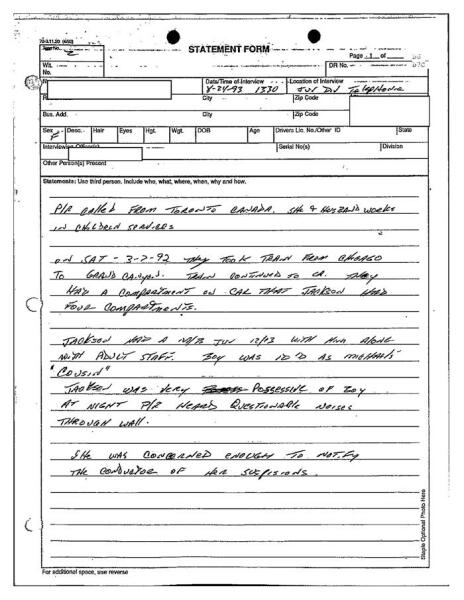 70-3.11.20 (6/92)
STATEMENT FORM
Page 1 of
Wit. No.
DR No.
Date/Time of Interview
Location of Interview
8-24-93 1330
JUV DIV Telephone
City
Zip Code
Bus. Add.
City
Zip Code
Sex
Desc.
Hair
Eyes
Hgt.
Wgt.
DOB
Age
Drivers Lic. No./Other ID
State
F
Interviewing Officer(s)
Serial No(s)
Division
Other Person(s) Present
Statements: Use third person. Include who, what, where, when, why and how.
P/R called FROM TORONTO CANADA. SHE & HUSBAND WORKS
IN CHILDREN SERVICES
ON SAT - 3-7-92 THEY TOOK TRAIN FROM CHICAGO
TO GRAND CANYON. TRAIN CONTINUED TO CA. THEY
HAD A COMPARTMENT ON CAR THAT JACKSON HAD
FOUR COMPARTMENTS.
JACKSON HAD A M/B JUV 12/13 WITH HIM ALONG
WITH ADULT STAFF. BOY WAS ID'D AS MICHAELS
"COUSIN"
JACKSON WAS VERY POSSESSIVE OF BOY
AT NIGHT P/R HEARD QUESTIONABLE NOISES
THROUGH WALL.
SHE WAS CONCERNED ENOUGH TO NOTIFY
THE CONDUCTOR OF HER SUSPISIONS.
Staple Optional Photo Here
For additional space, use reverse